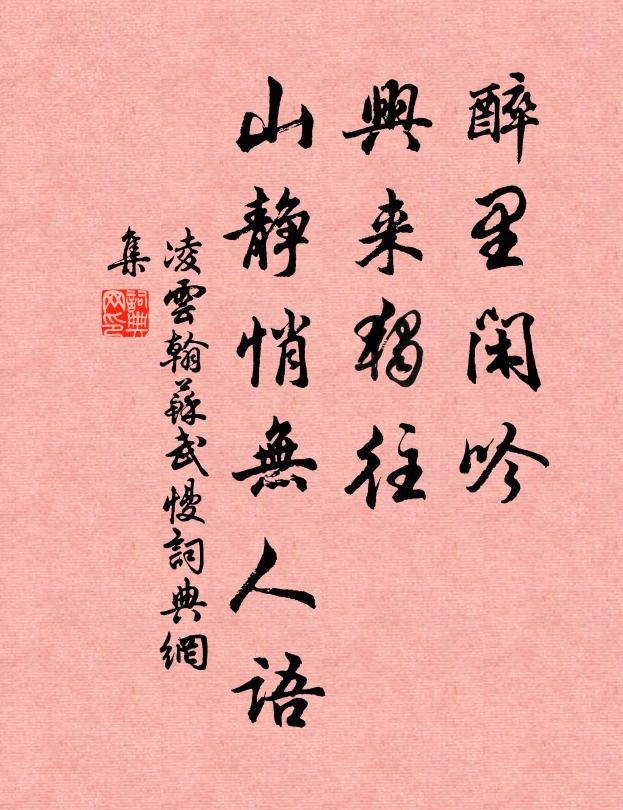 醉里闲吟
興来獨往
山静悄無人語
凌雲翰蘇武慢詞典網
集
詞典
网印